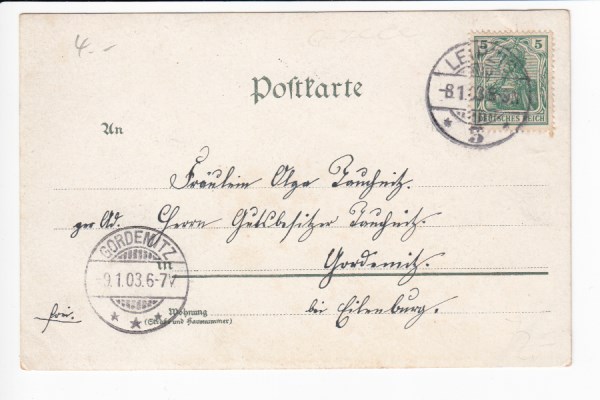 4.-
Postkarte
5 5
DEUTSCHES REICH
LEIPZIG
-8.1.03
5
An
Fräulein Olga Tauchnitz.
per Ad. Herrn Gutsbesitzer Tauchnitz.
Gordemitz.
bei Eilenburg.
GORDEMITZ
-9.1.03.6-7V
frei.
Wohnung
(Straße und Hausnummer)